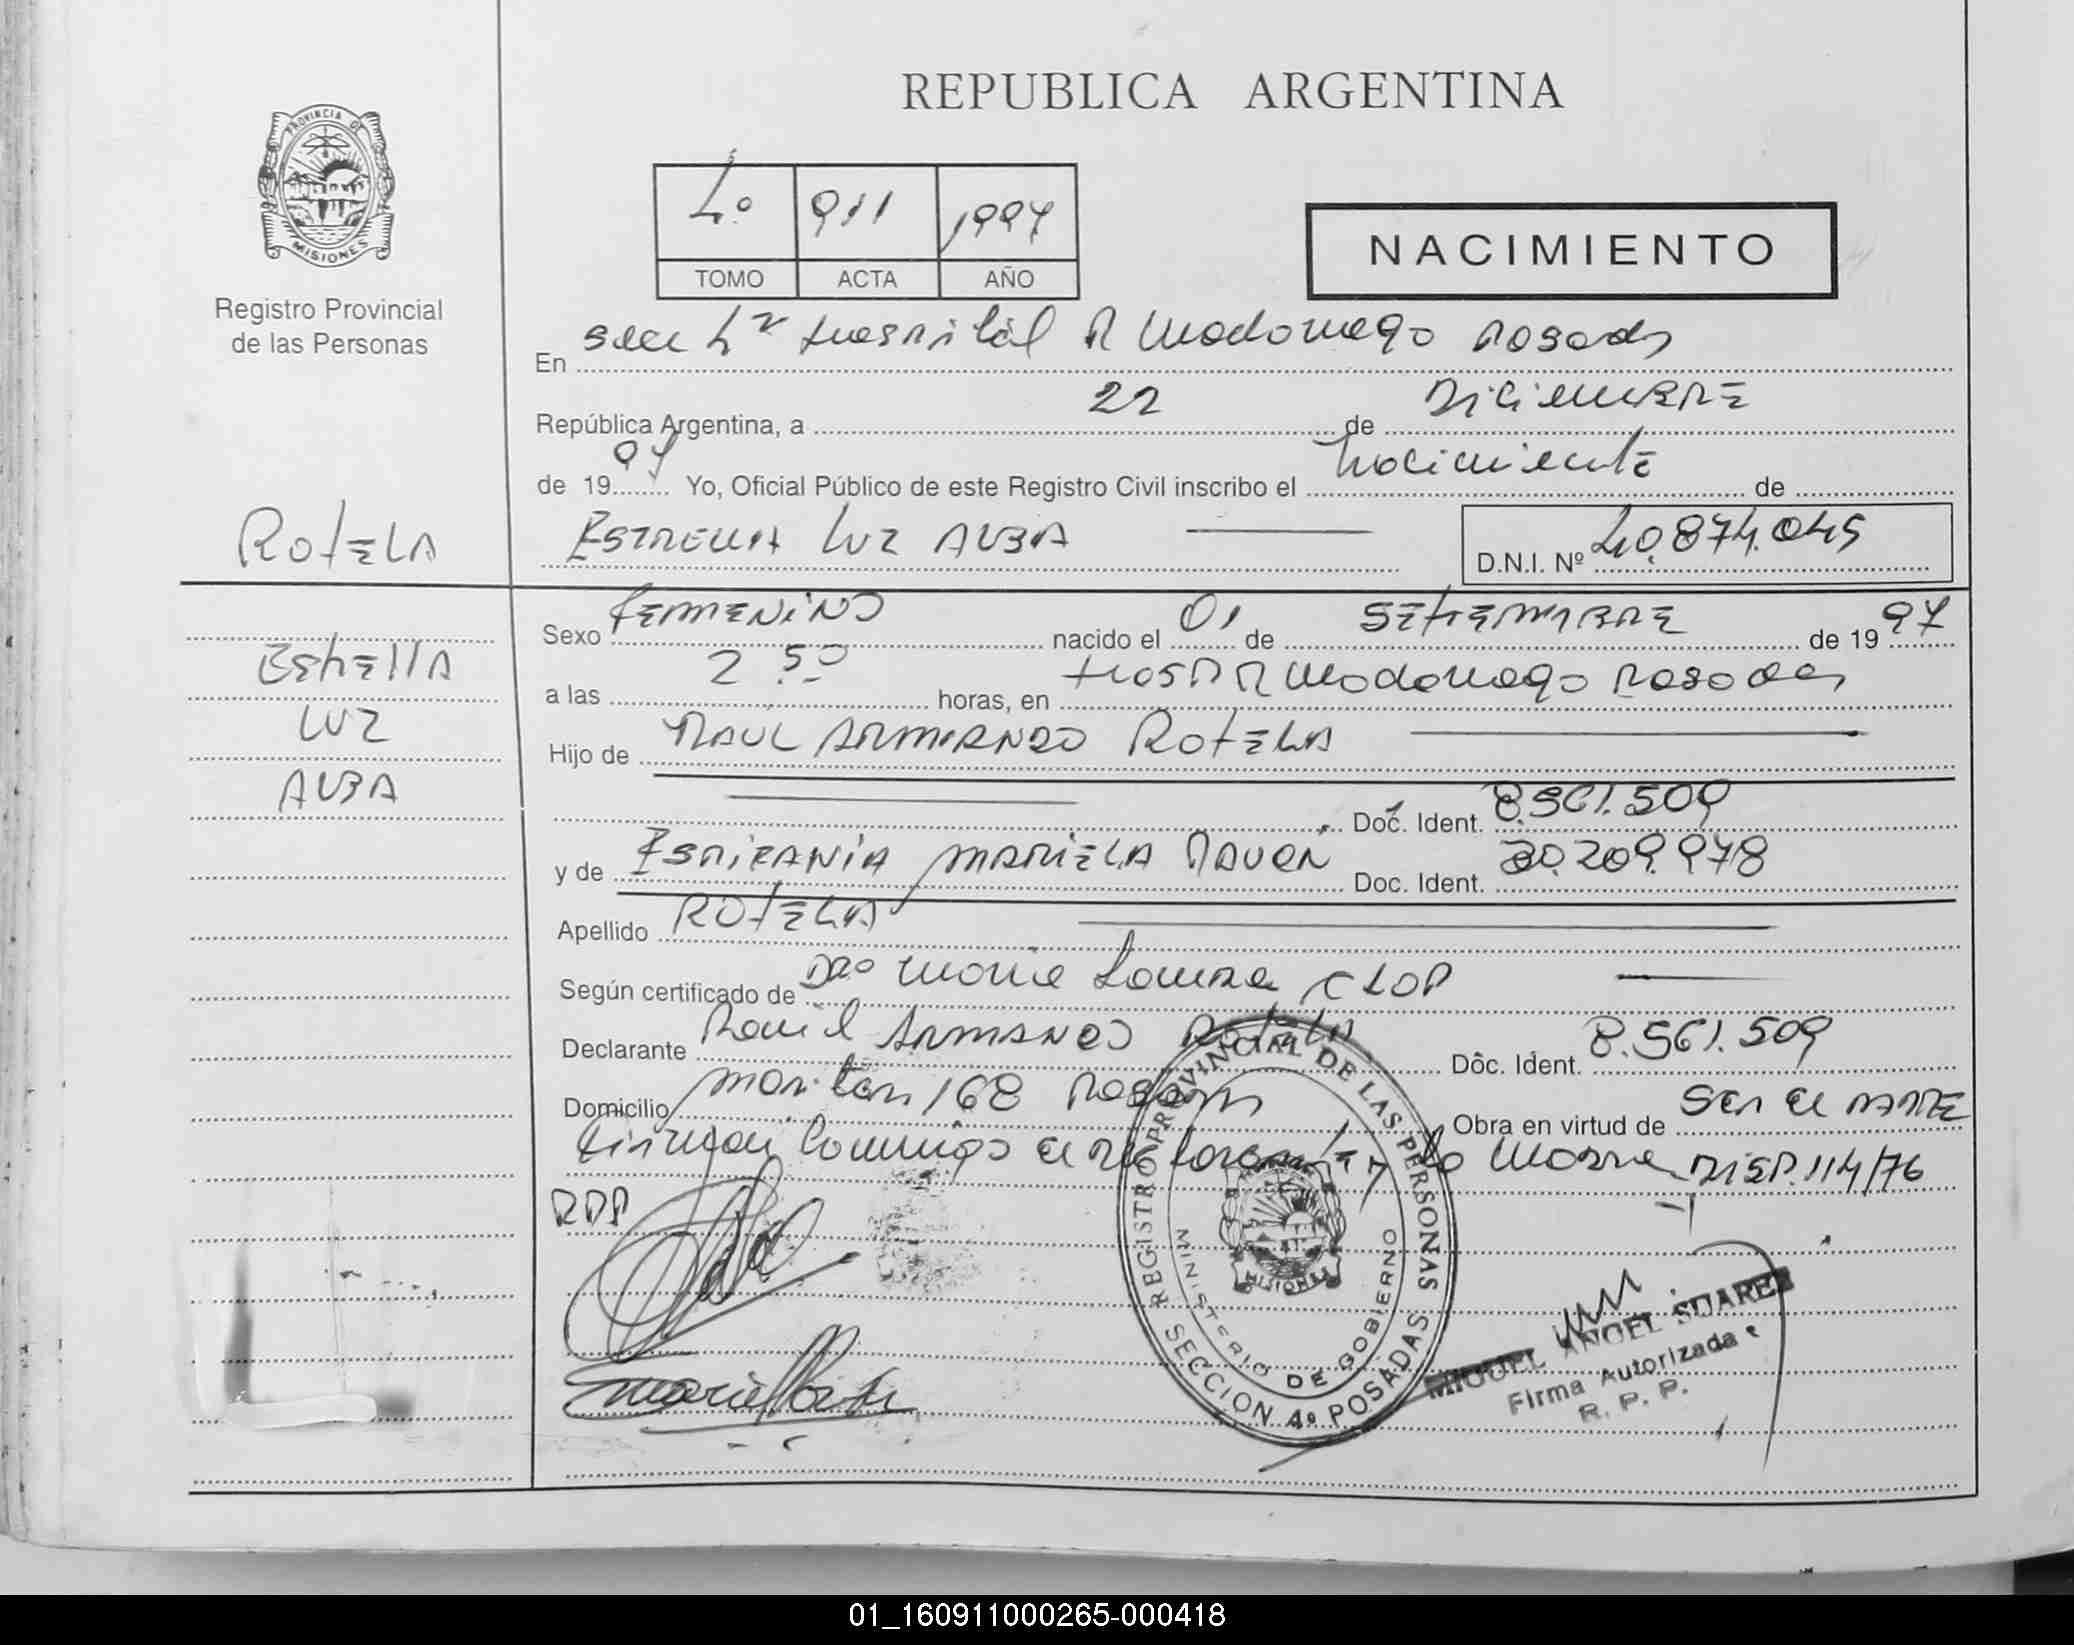 REPUBLICA ARGENTINA
PROVINCIA DE
MISIONES
Registro Provincial
de las Personas
4º 911 1997
TOMO ACTA AÑO
NACIMIENTO
En Secc 4ª Hospital R Madariaga Posadas
República Argentina, a 22 de DICIEMBRE
de 1997 Yo, Oficial Público de este Registro Civil inscribo el Nacimiento de
ROTELA
ESTRELLA LUZ ALBA
D.N.I. Nº 40.874.045
Sexo FEMENINO nacido el 01 de SETIEMBRE de 1997
ESTRELLA
a las 2 50 horas, en Hosp R Madariaga Posadas
LUZ
Hijo de RAUL ARMANDO ROTELA
ALBA
Doc. Ident. 8.561.509
y de MARIELA Doc. Ident. 20.209.978
Apellido ROTELA
Según certificado de Dra Maria
Declarante Raul ARMANDO Rotela Doc. Ident. 8.561.509
Domicilio 168 Posadas Obra en virtud de Ser el PADRE
Firman Conmigo el declarante y la Madre DISP. 114/76
RDP
REGISTRO PROVINCIAL DE LAS PERSONAS
MINISTERIO DE GOBIERNO
MISIONES
SECCION 4º POSADAS
MIGUEL ANGEL SUAREZ
Firma Autorizada
R. P. P.
01_160911000265-000418